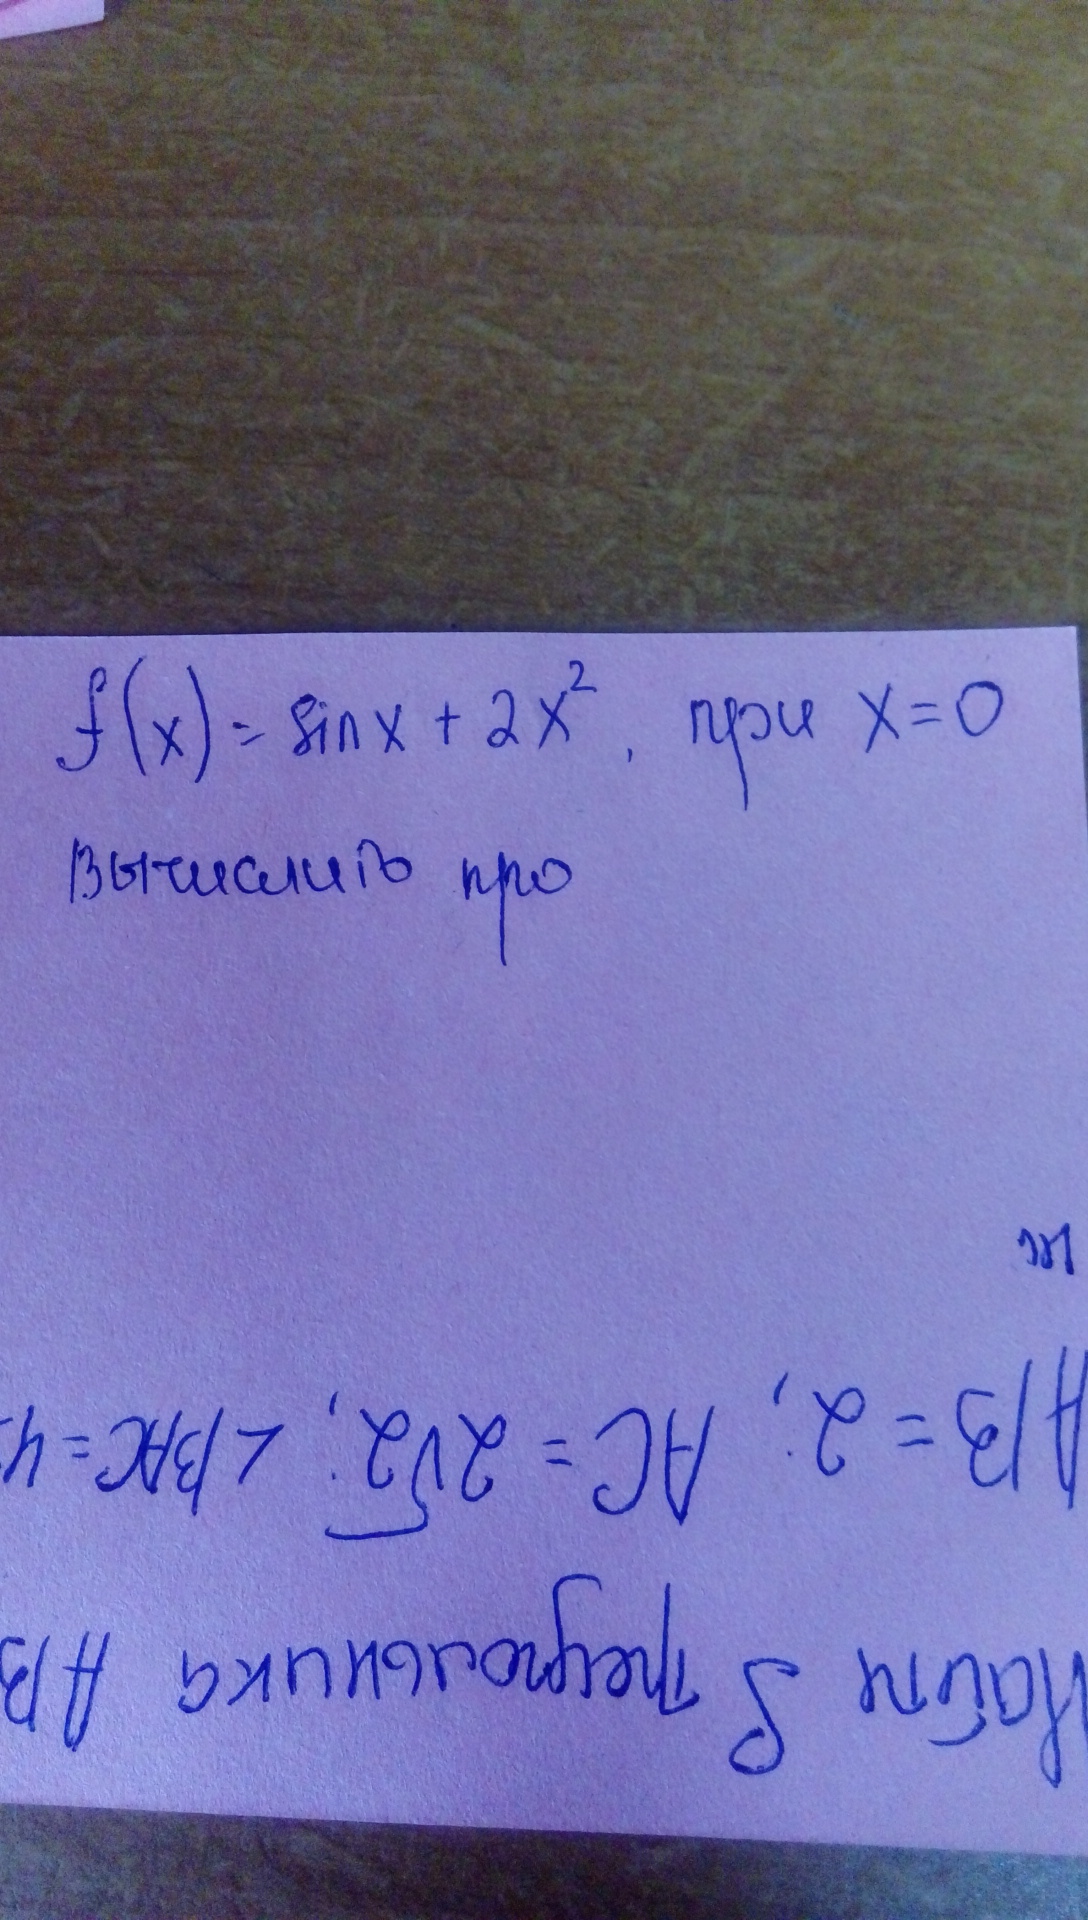 f(x) = sin x + 2x², при x=0
Вычислить про
Найти S треугольника AB
AB = 2; AC = 2√2; <BAC = 4